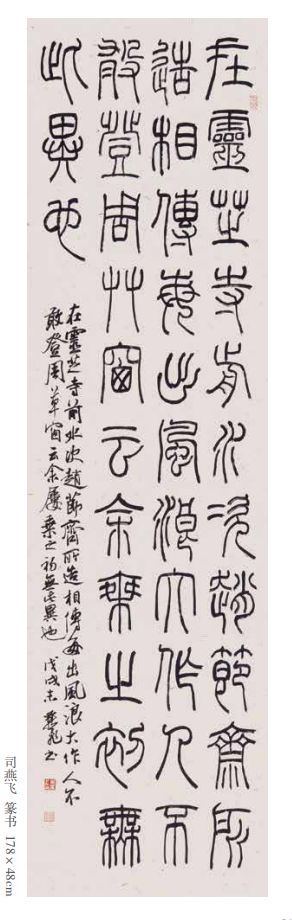 在靈芝寺前水次趙節齋所
造相傳每出風浪大作人不
敢登周艸窗云余乘之初無
此異也
在靈芝寺前水次趙節齋所造相傳每出風浪大作人不
敢登周草窗云余屢乘之初無此異也 戊戌末 燕飛书
司燕飞 篆书 178×48cm